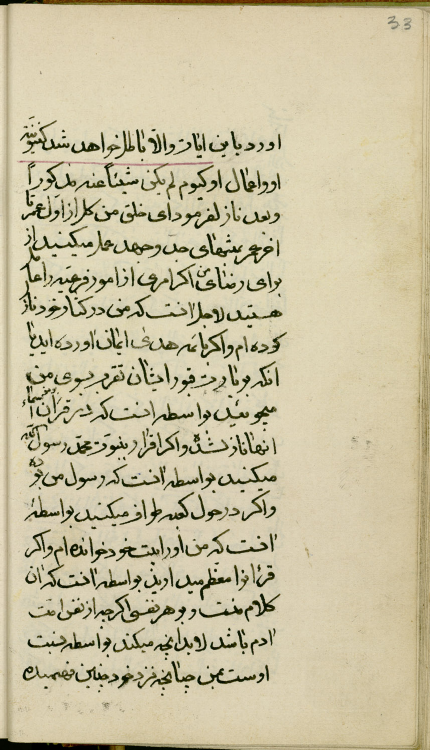 33
اورد باین ایات والا باطل خواهد شد کینونیته
او و اعمال او کیوم لم یکن شیئا عنه مذکورا
و بعد نازل فرموده ای خلق من کل از اول عمر تا
اخر عمر بمنتهای جد و جهد عمل میکنید از
برای رضای من اکر امری از امور فرعیه را عامل
هستید لاجل انست که من در کتاب خود نازل
کرده ام و اکر بائمه هدی ایمان اورده اید یا
انکه بزیارت قبور ایشان تقرب بسوی من
میجوئید بواسطه انست که در قران اسماء
انها نازل شده و اکر اقرار بنبوت محمد رسول الله
میکنید بواسطه انست که رسول من بوده
و اکر در حول کعبه طواف میکنید بواسطه
انست که من او را بیت خود خوانده ام و اکر
قرانرا معظم میدارید بواسطه انست که ان
کلام منست و هر نفسی اکر چه از نفس امت
ادم باشد لابد انچه میکند بواسطه نسبت
اوست بمن چنانچه نزد خود چنین فهمیده